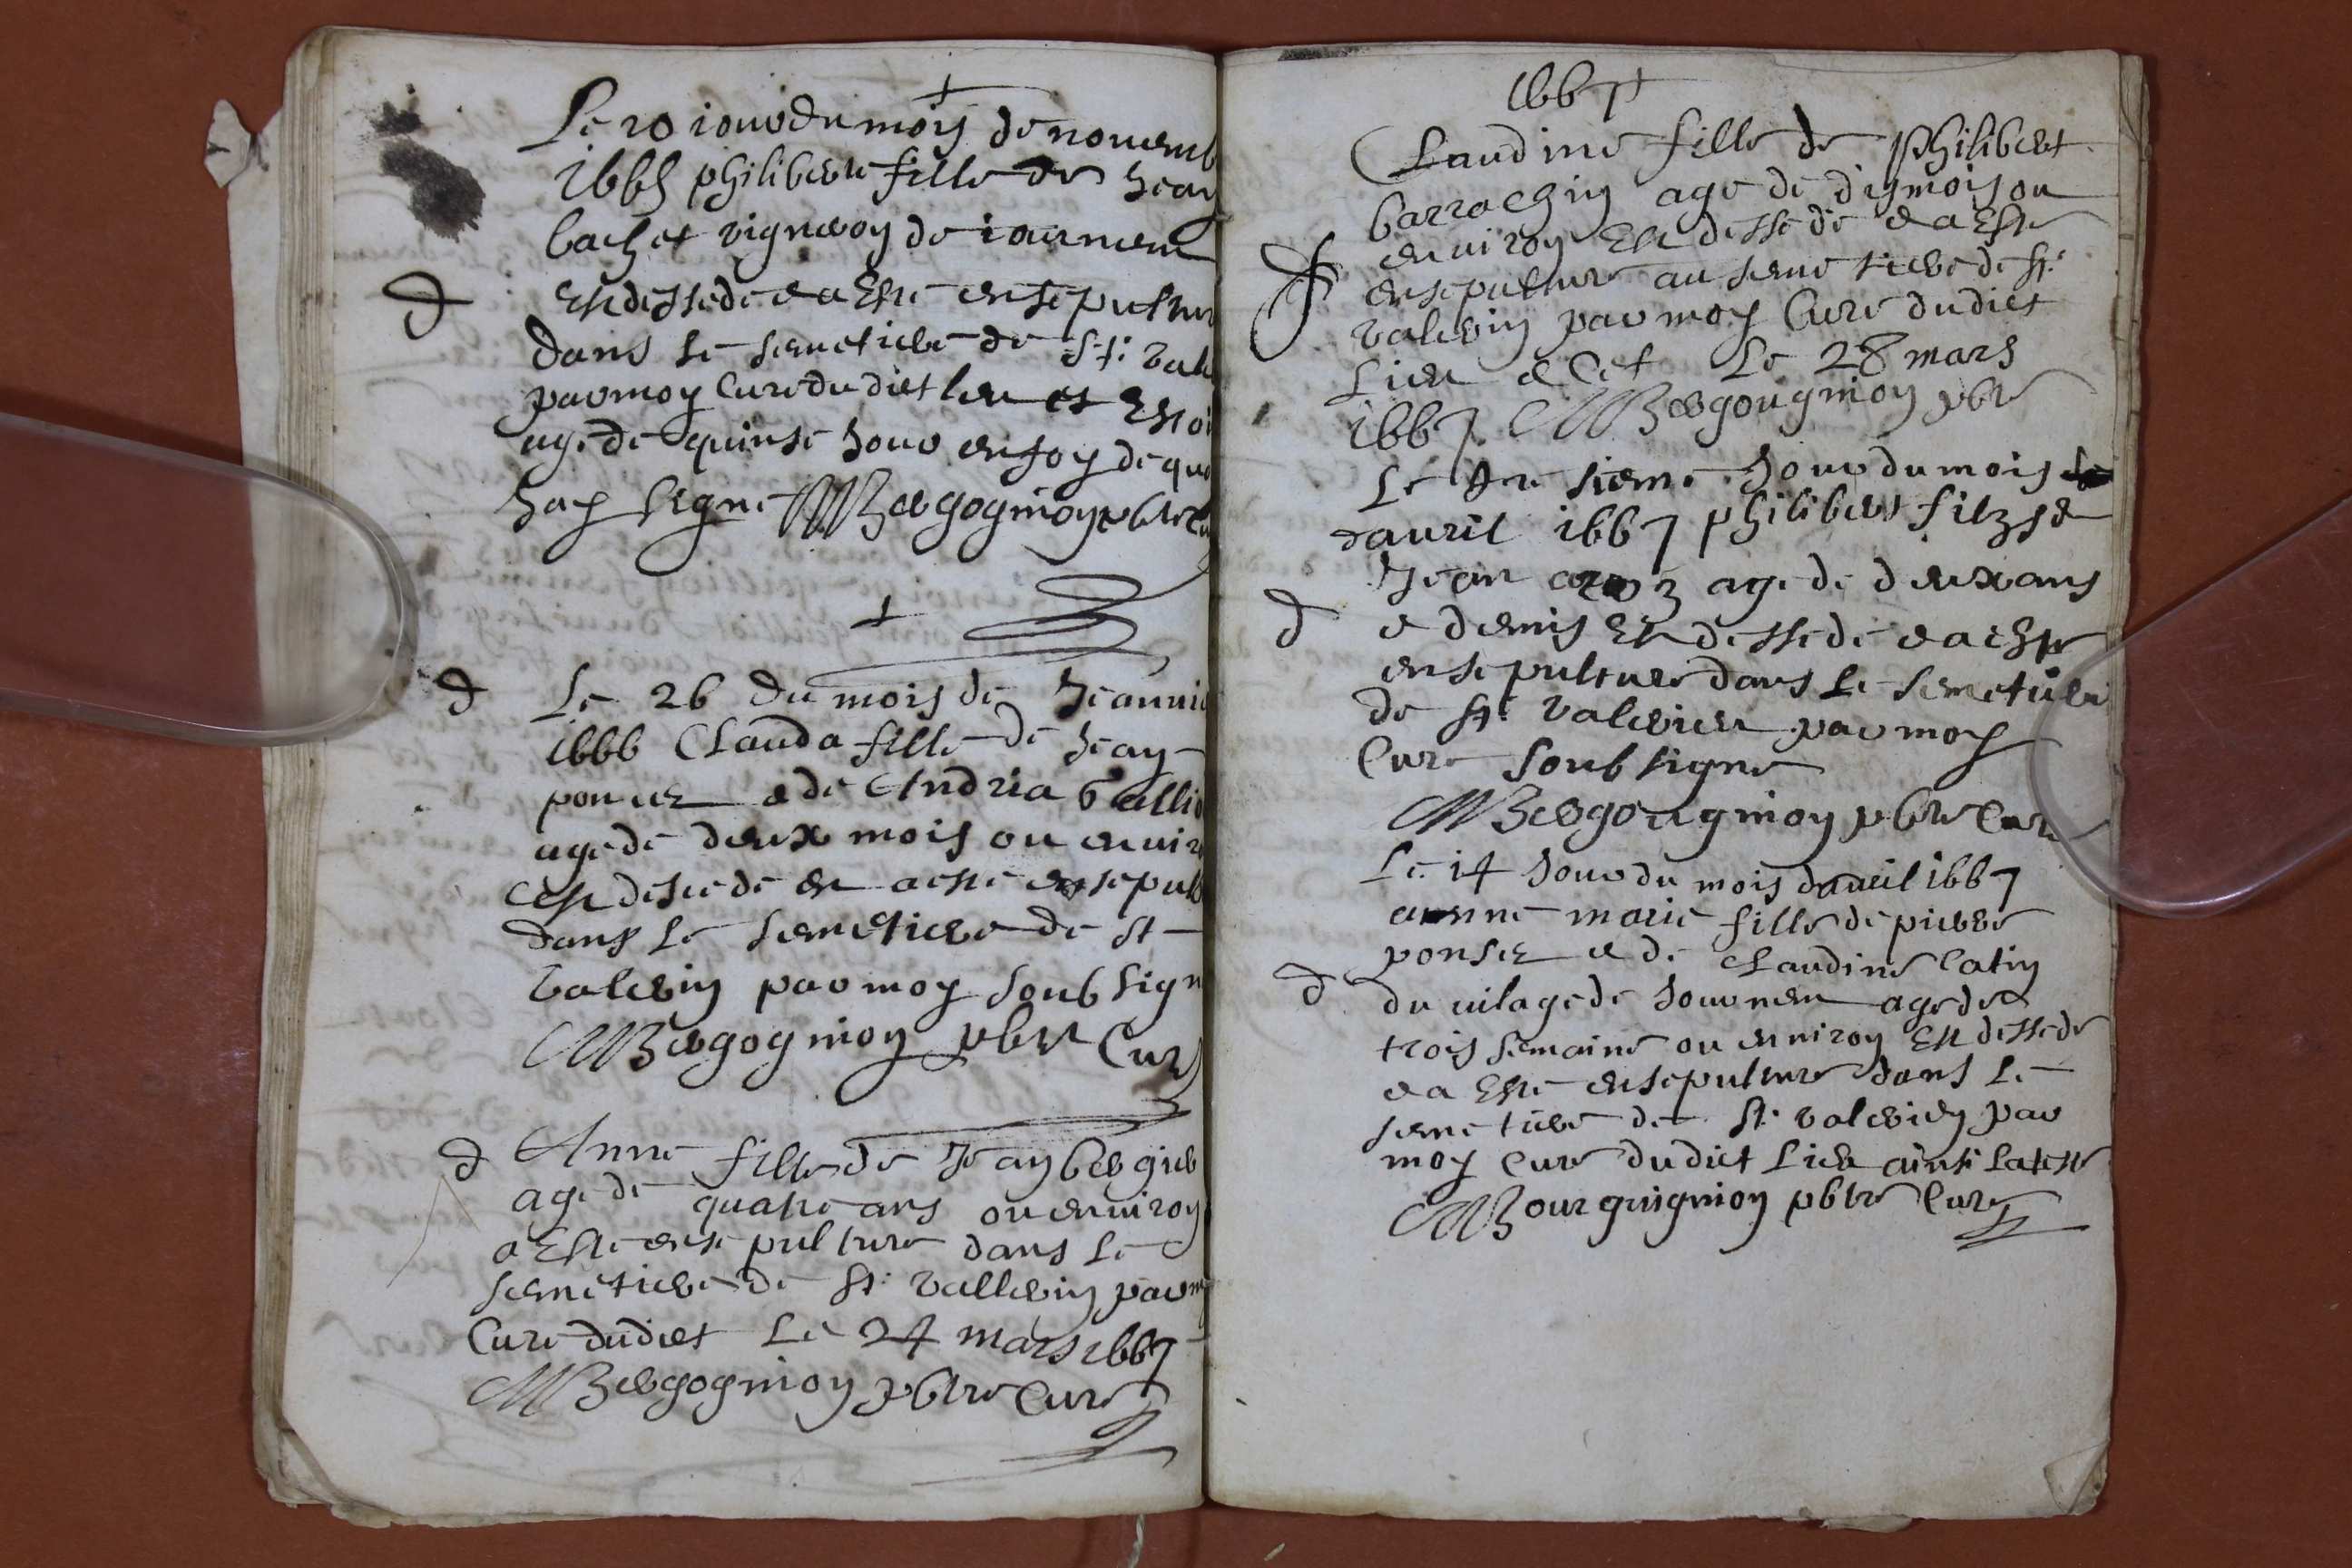 Le 20 iour du mois de nouemb
1665 philiberte fille de Jean
bachet vigneron de iournem
d
Est dessede e a Esté ensepultur
dans le semetiere de St: Vale
par moy Curé du dict lieu et Estoi
agé de quinse Jour en foy de quo
Jay signé MBergognion pbtre Cu
d
Le 26 du mois de Jeanuie
1666 Clauda fille de Jean
poncet e de Andria Gallio
agé de deux mois ou enuir
est desede et a esté ensepult
dans le semetiere de St
Valerin par moy soubsign
MBergognion pbtre Cur
d Anne fille de Jean bergier
agé de quatre ans ou enuiron
a Esté ensepulture dans le
semetiere de St: Vallerin par m
Curé dudict Le 24 mars 1667
MBergognion pbtre Curé
1667
Claudine fille de Philibert
barrachin age de dismois ou
enuiron Est dessede e a Esté
ensepulture au semetiere de St:
Valerin par moy Curé dudict
Lieu Le 28 mars
1667 MBergougnion pbtre
Le sieme Jour du mois
dauril 1667 philibert filz de
Jean age de deux ans
d
e demis Est dessede e a esté
ensepulture dans le semetiere
de St: Valerien par moy
Curé soubsigné
MBergougnion pbtre Curé
Le 14 Jour du mois dauril 1667
anne marie fille de pierre
ponset e de Claudine Catin
d
du vilage de Journem agé de
trois semaine ou enuiron Est dessede
e a Esté ensepulture dans le
semetiere de St: Valerien par
moy Curé dudict Lieu ainsi lateste
MBourguignion pbtre Curé